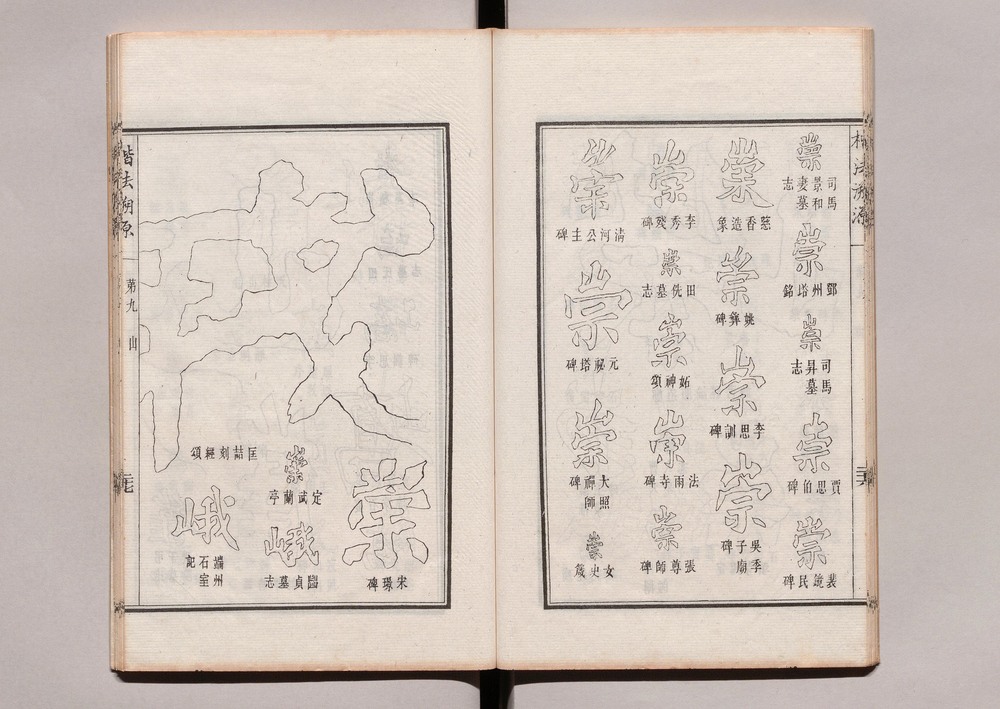 楷法溯源
崇
司馬景和妻墓志
崇
鄧州塔銘
崇
司馬昇墓志
崇
賈思伯碑
崇
裴鏡民碑
崇
慈香造象
崇
姚彝碑
崇
李思訓碑
崇
吳季子廟碑
崇
李秀殘碑
崇
田侁墓志
崇
妬神頌
崇
法雨寺碑
崇
張尊師碑
崇
清河公主碑
崇
元祕塔碑
崇
大照禪師碑
崇
女史箴
崇
宋璟碑
匡喆刻經頌
崇
定武蘭亭
峨
貞墓志
峨
端州石室記
楷法溯原
第九
山
二十七